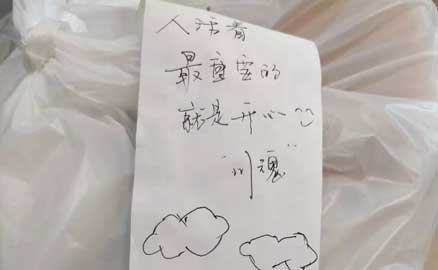 人活着
最重要的
就是开心
"川魂"